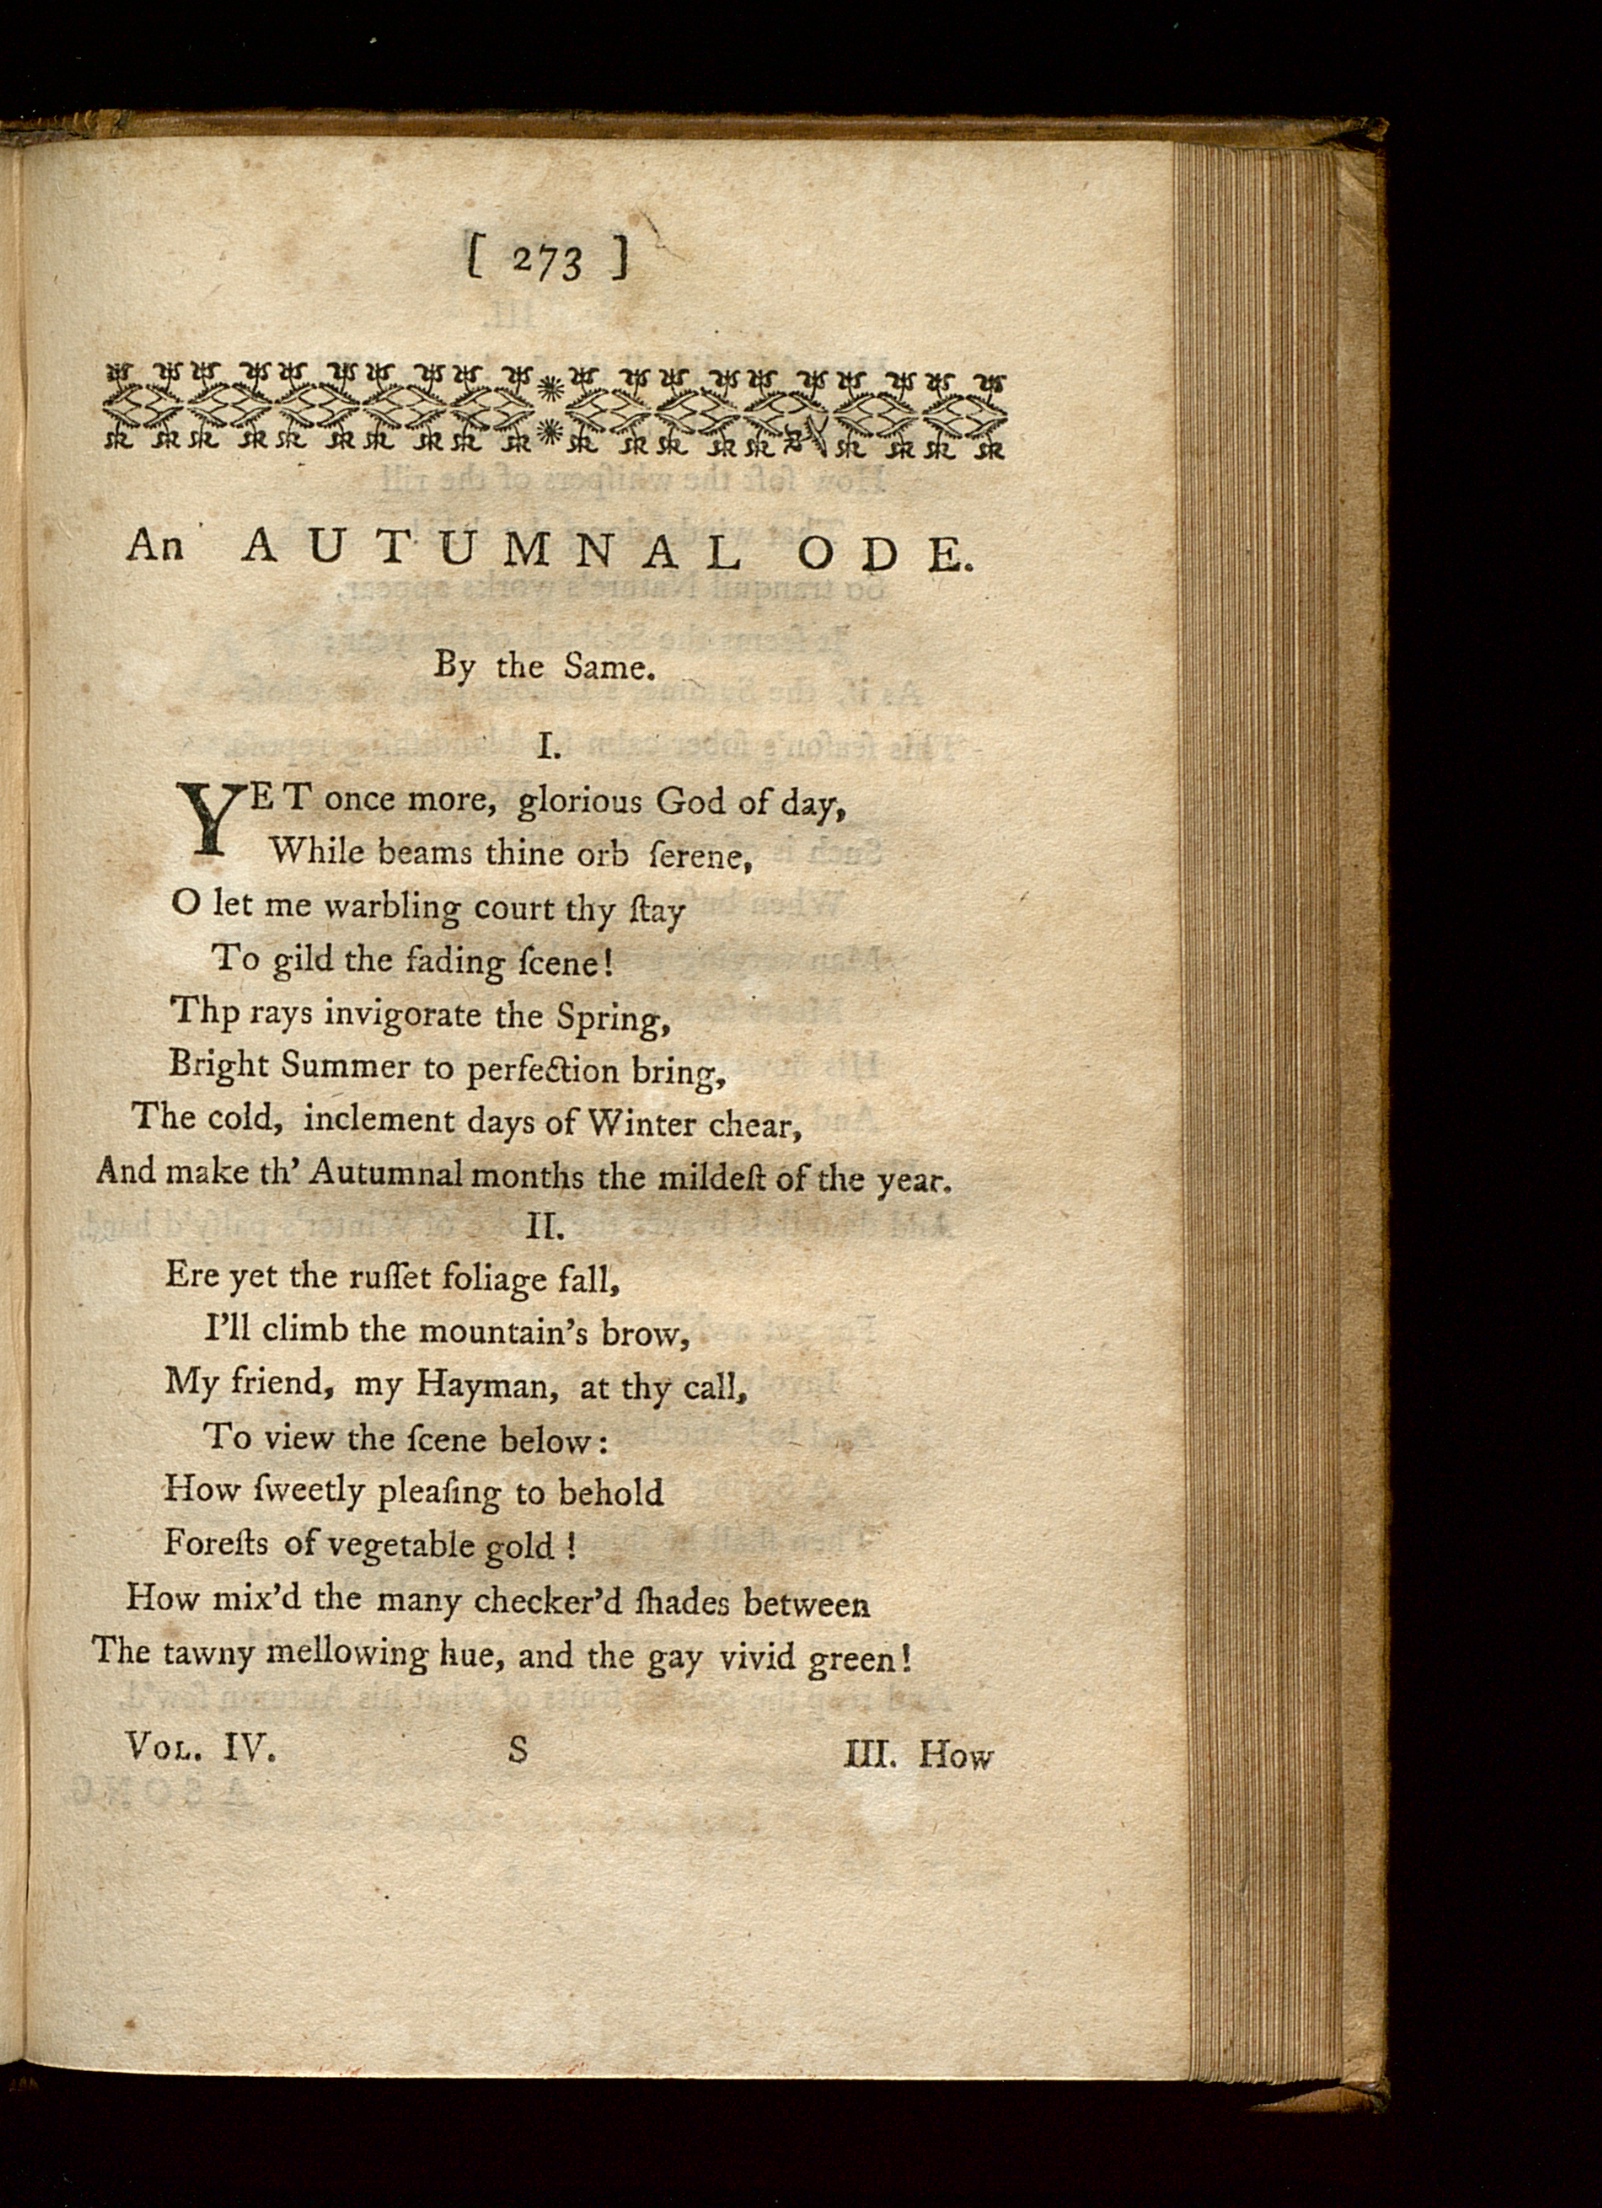 [ 273 ]
An AUTUMNAL ODE.
By the Same.
I.
YET once more, glorious God of day,
While beams thine orb ſerene,
O let me warbling court thy ſtay
To gild the fading ſcene!
Thp rays invigorate the Spring,
Bright Summer to perfection bring,
The cold, inclement days of Winter chear,
And make th' Autumnal months the mildeſt of the year.
II.
Ere yet the ruſſet foliage fall,
I'll climb the mountain's brow,
My friend, my Hayman, at thy call,
To view the ſcene below:
How ſweetly pleaſing to behold
Foreſts of vegetable gold!
How mix'd the many checker'd ſhades between
The tawny mellowing hue, and the gay vivid green!
VOL. IV. S III. How